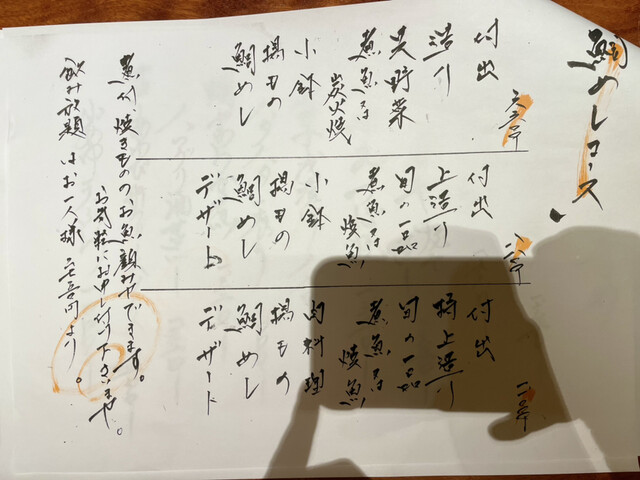 鯛めしコース
付出
造り
野菜
煮魚又は
炭火焼
小鉢
揚もの
鯛めし
付出
上造り
旬の一品
煮魚又は
焼魚
小鉢
揚もの
鯛めし
デザート
付出
特上造り
旬の一品
煮魚又は
焼魚
肉料理
揚もの
鯛めし
デザート
煮付、焼きものの、お魚できます。
お気軽にお申し付け下さいませ。
飲み放題はお一人様 円より。